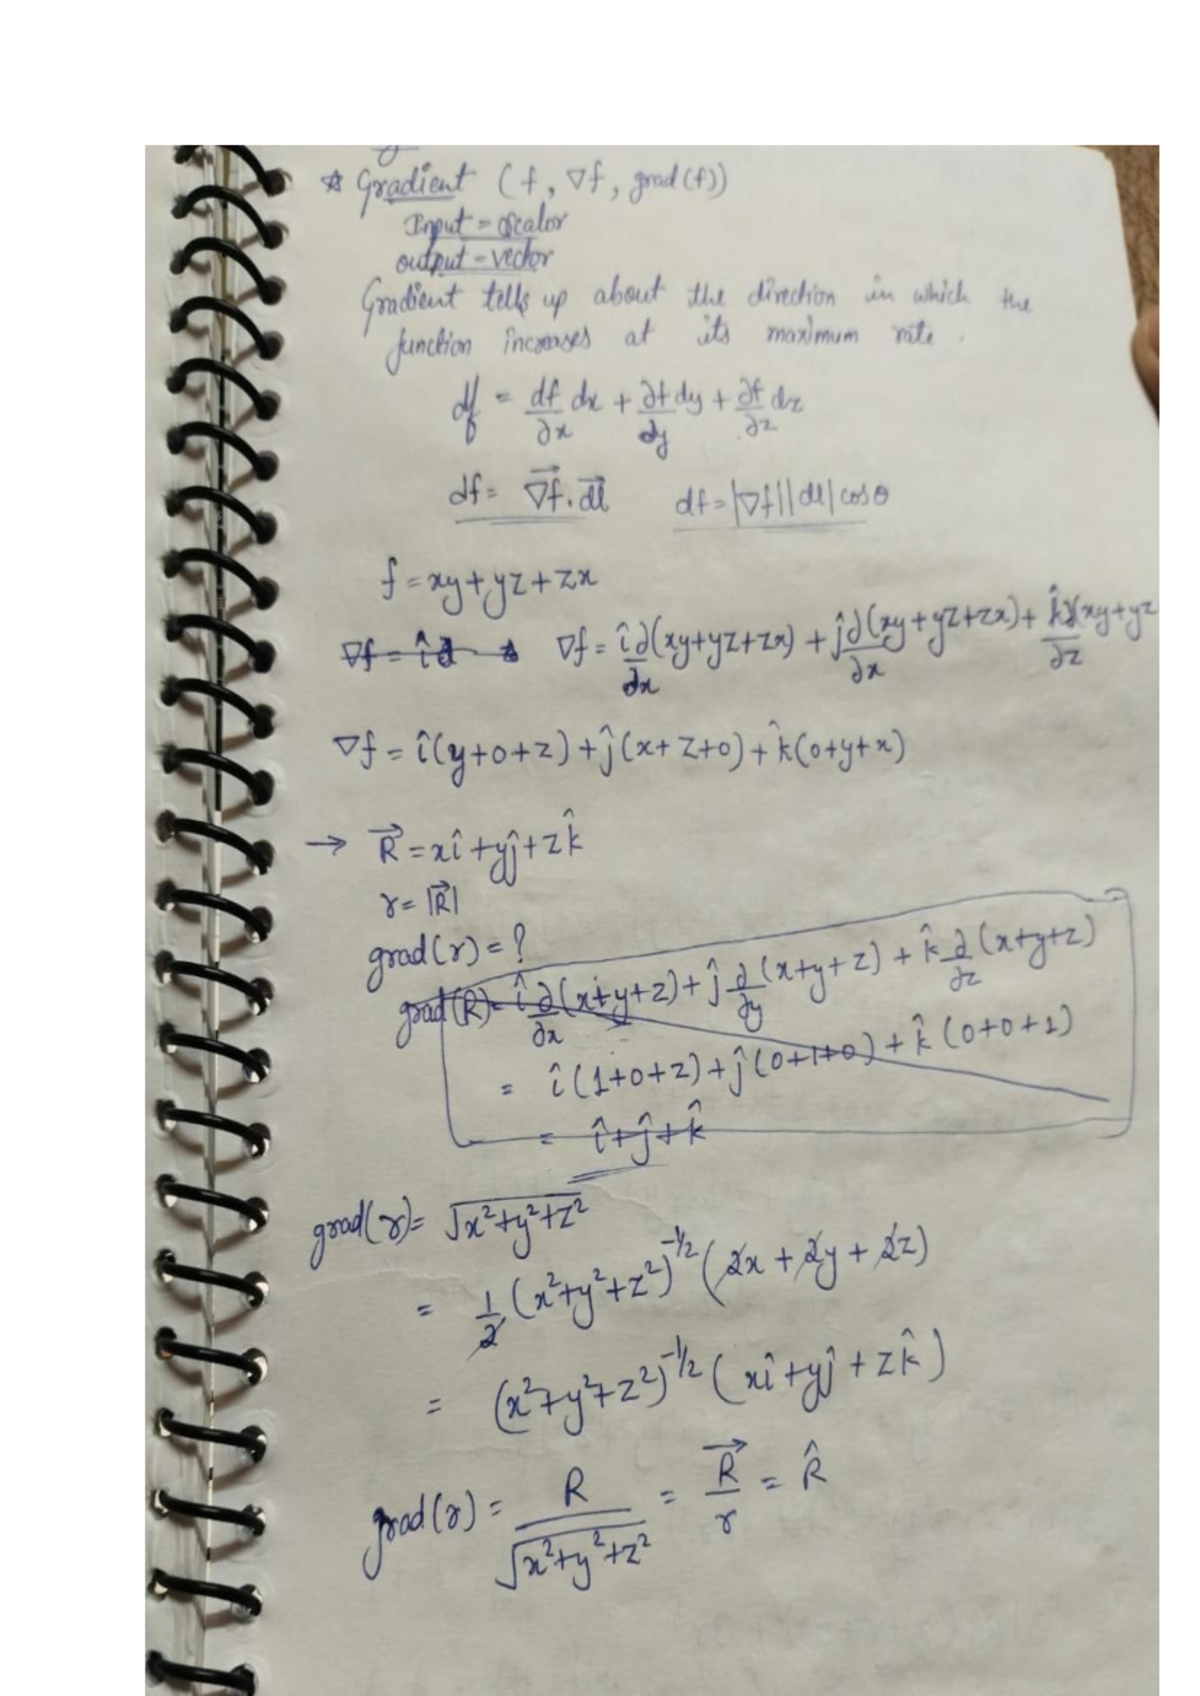 ☆ Gradient (f, ∇f, grad(f))
Input = scalar
output = vector
Gradient tells up about the direction in which the
function increases at its maximum rate.
df = df/∂x dx + ∂f/dy dy + ∂f/∂z dz
df = ∇f⃗ . dl⃗    df = |∇f||dl|cosθ
f = xy+yz+zx
∇f = î∂    ∇f = î∂/∂x(xy+yz+zx) + ĵ∂/∂x(xy+yz+zx) + k̂∂/∂z(xy+yz
∇f = î(y+0+z) + ĵ(x+z+0) + k̂(0+y+x)
→ R⃗ = xî + yĵ + zk̂
r = |R⃗|
grad(r) = ?
grad(R) = î ∂/∂x (x+y+z) + ĵ ∂/∂y (x+y+z) + k̂ ∂/∂z (x+y+z)
= î(1+0+z) + ĵ(0+1+0) + k̂(0+0+1)
= î+ĵ+k̂
grad(r) = √x²+y²+z²
= 1/2 (x²+y²+z²)^-1/2 (2x + 2y + 2z)
= (x²+y²+z²)^-1/2 (xî + yĵ + zk̂)
grad(r) = R/√x²+y²+z² = R⃗/r = R̂